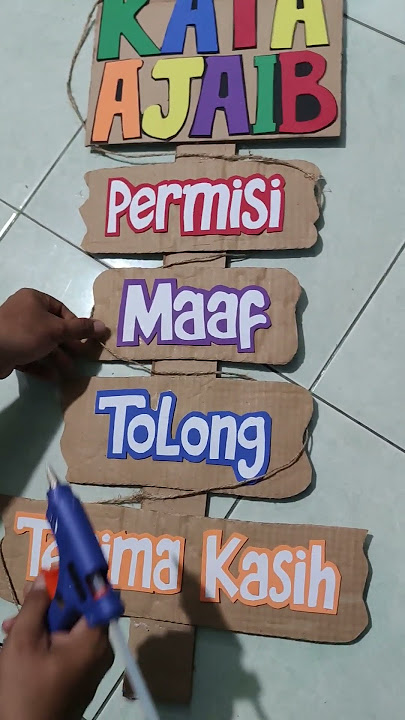 KATA
AJAIB
Permisi
Maaf
ToLong
Terima Kasih